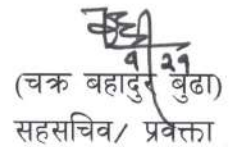 ९ २१
(चक्र बहादुर बुढा)
सहसचिव/ प्रवक्ता